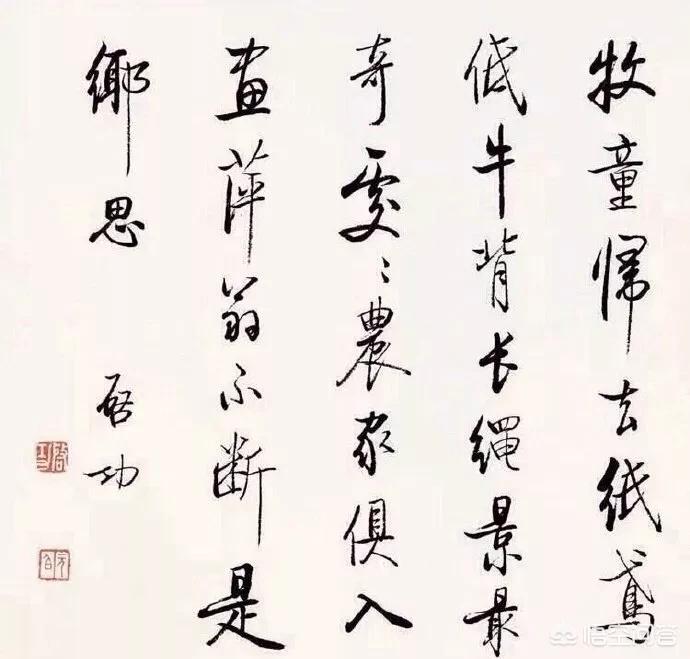 牧童归去纸鸢
低牛背长绳景最
奇处々农家俱入
画萍翁不断是
乡思
启功
悟空问答